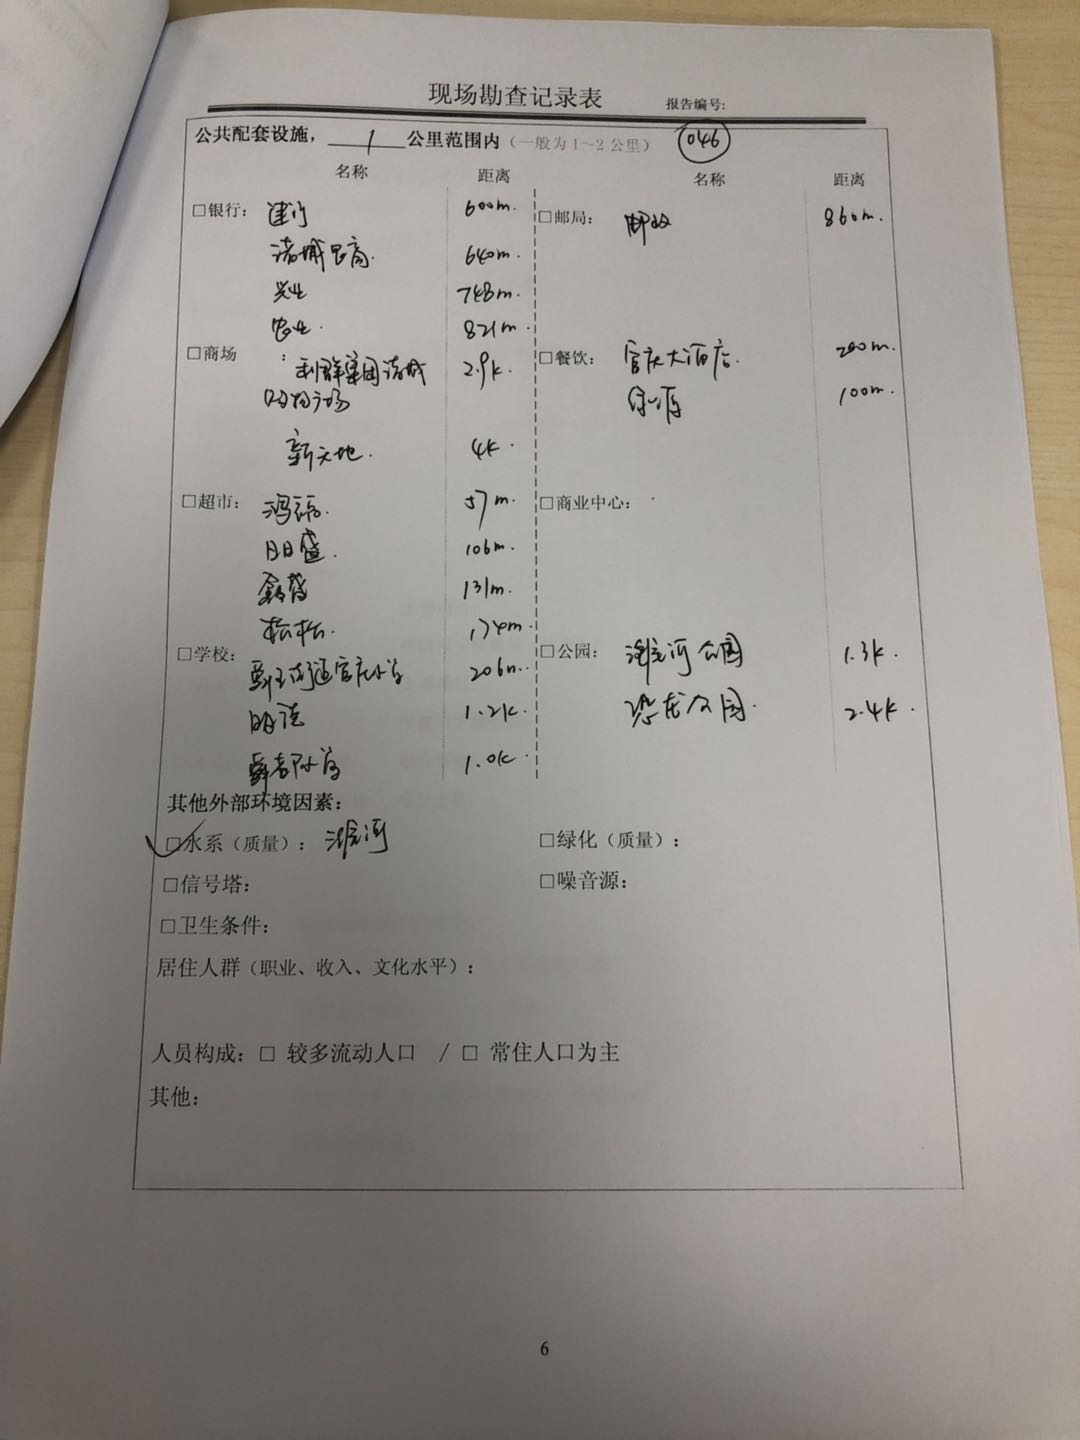 现场勘查记录表
报告编号:
公共配套设施，1公里范围内（一般为1～2公里） 046
名称 距离 名称 距离
□银行： 建行 600m. □邮局： 邮政 860m.
诸城农商. 640m.
兴业 748m.
农业. 821m.
□商场： 利群集团诸城 2.9k. □餐饮： 官庄大酒店. 200m.
购物广场 100m.
新天地. 4k
□超市： 57m. □商业中心：
日日盛. 106m.
鑫 131m.
松松. 174m.
□学校： 舜王街道官庄小学 206m. □公园： 潍河公园 1.3k.
明诚 1.2k. 恐龙公园. 2.4k.
1.0k.
其他外部环境因素：
□水系（质量）： 潍河 □绿化（质量）：
□信号塔： □噪音源：
□卫生条件：
居住人群（职业、收入、文化水平）：
人员构成：□ 较多流动人口 / □ 常住人口为主
其他：
6